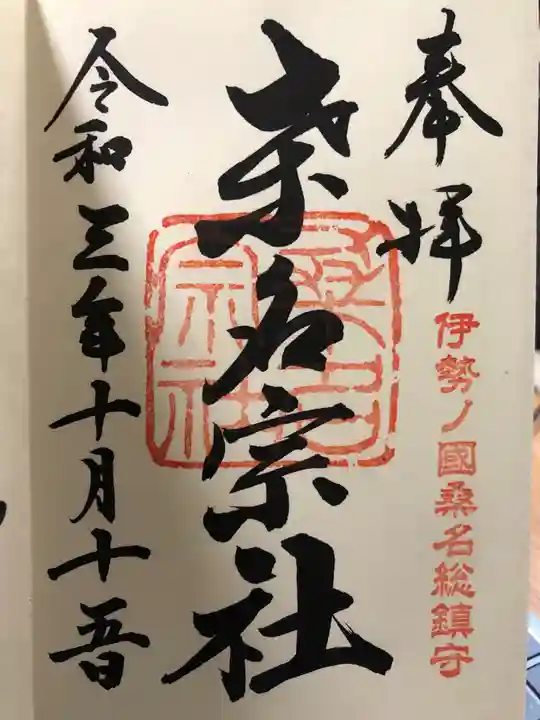 奉拝
伊勢ノ國桑名総鎮守
桑名宗社
桑名
宗社
令和三年十月十五日